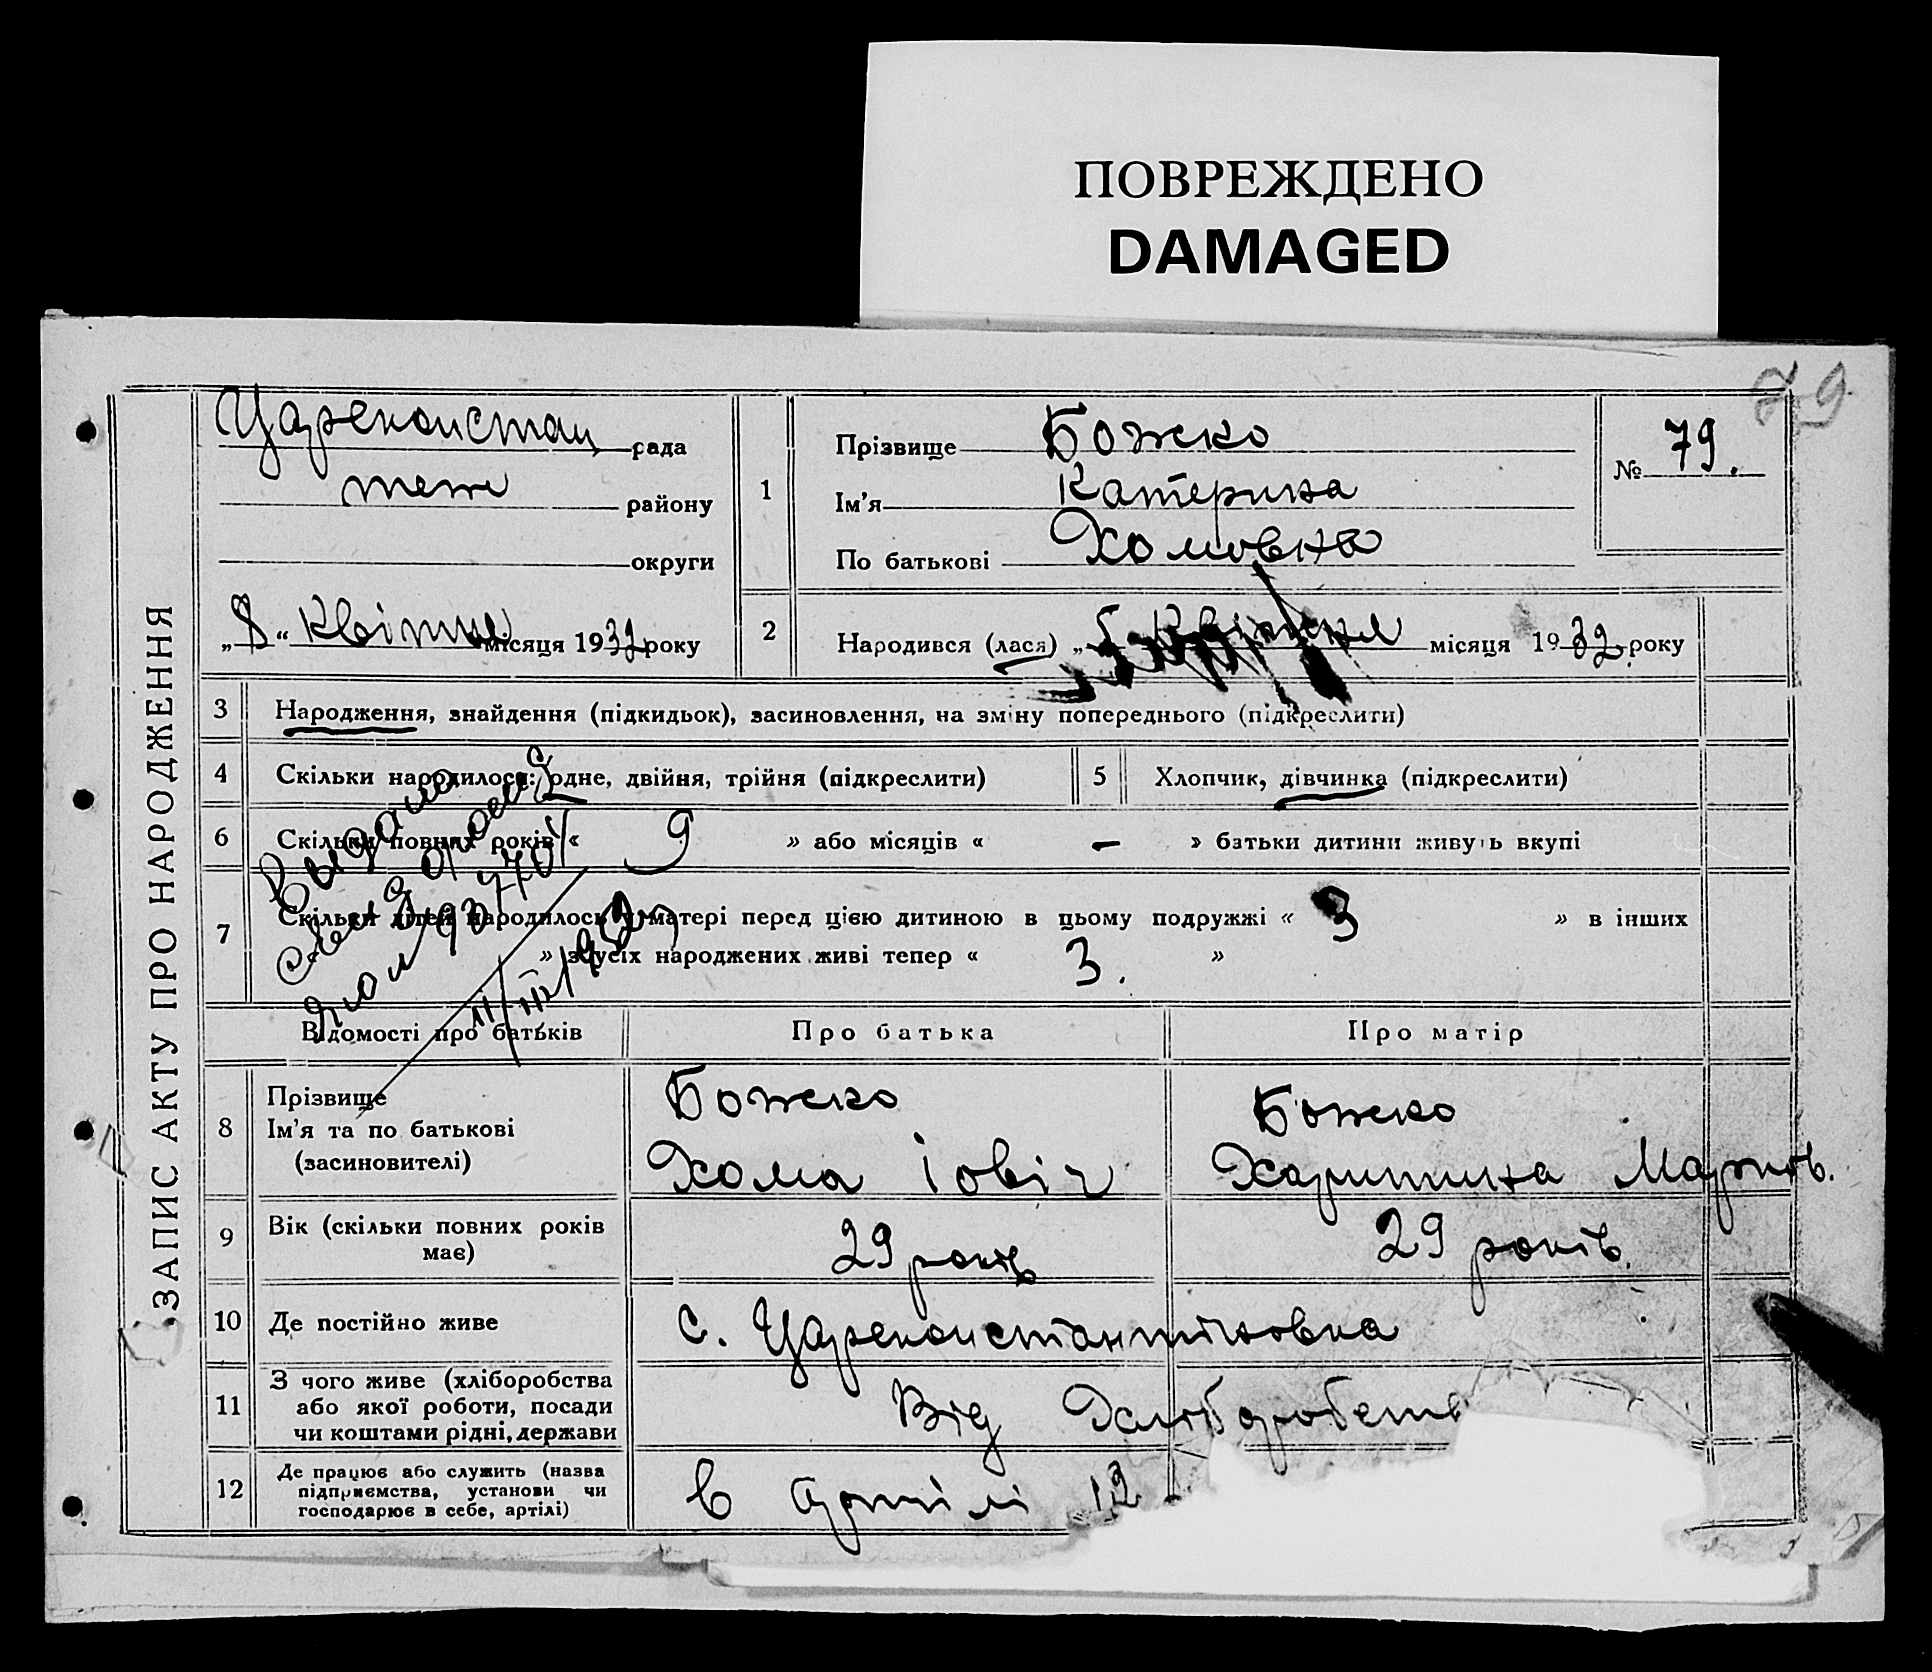 ПОВРЕЖДЕНО
DAMAGED
79
ЗАПИС АКТУ ПРО НАРОДЖЕННЯ
Цареконстан рада
теж району
округи
„8“ Квітня місяця 1932 року
1
Прізвище Божко
Ім'я Катерина
По батькові Хомовна
№ 79.
2 Народився (лася) „5 Квітня місяця 1932 року
3 Народження, знайдення (підкидьок), засиновлення, на зміну попереднього (підкреслити)
4 Скільки народилося: одне, двійня, трійня (підкреслити)
5 Хлопчик, дівчинка (підкреслити)
6 Скільки повних років « 9 » або місяців « — » батьки дитини живуть вкупі
7 Скільки дітей народилось у матері перед цією дитиною в цьому подружжі « 3 » в інших
» з усіх народжених живі тепер « 3. »
Выдано
11/III 1952
Відомості про батьків Про батька Про матір
8 Прізвище
Ім'я та по батькові
(засиновителі)
Божко
Хома Іовіч
Божко
Харитина Марков.
9 Вік (скільки повних років
має)
29 років
29 років.
10 Де постійно живе
с. Цареконстантіновка
11 З чого живе (хліборобства
або якої роботи, посади
чи коштами рідні, держави
Від Хліборобств
12 Де працює або служить (назва
підприємства, установи чи
господарює в себе, артілі)
в артілі 12